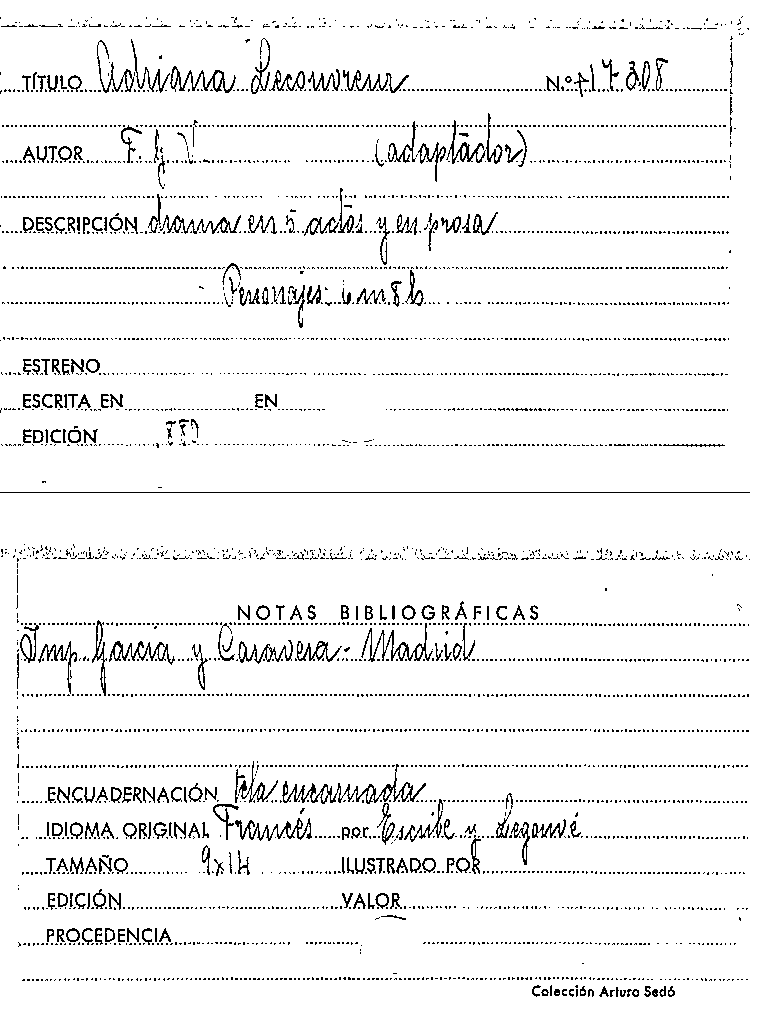 TÍTULO Adriana Lecouvreur N.º 17308
AUTOR F. G. V. (adaptador)
DESCRIPCIÓN drama en 5 actos y en prosa
- Personajes: 6 m 8 h
ESTRENO
ESCRITA EN EN
EDICIÓN
NOTAS BIBLIOGRÁFICAS
Imp. García y Caravera - Madrid
ENCUADERNACIÓN tela encarnada
IDIOMA ORIGINAL Francés por Escribe y Legouvé
TAMAÑO 9x14 ILUSTRADO POR
EDICIÓN VALOR
PROCEDENCIA
Colección Arturo Sedó